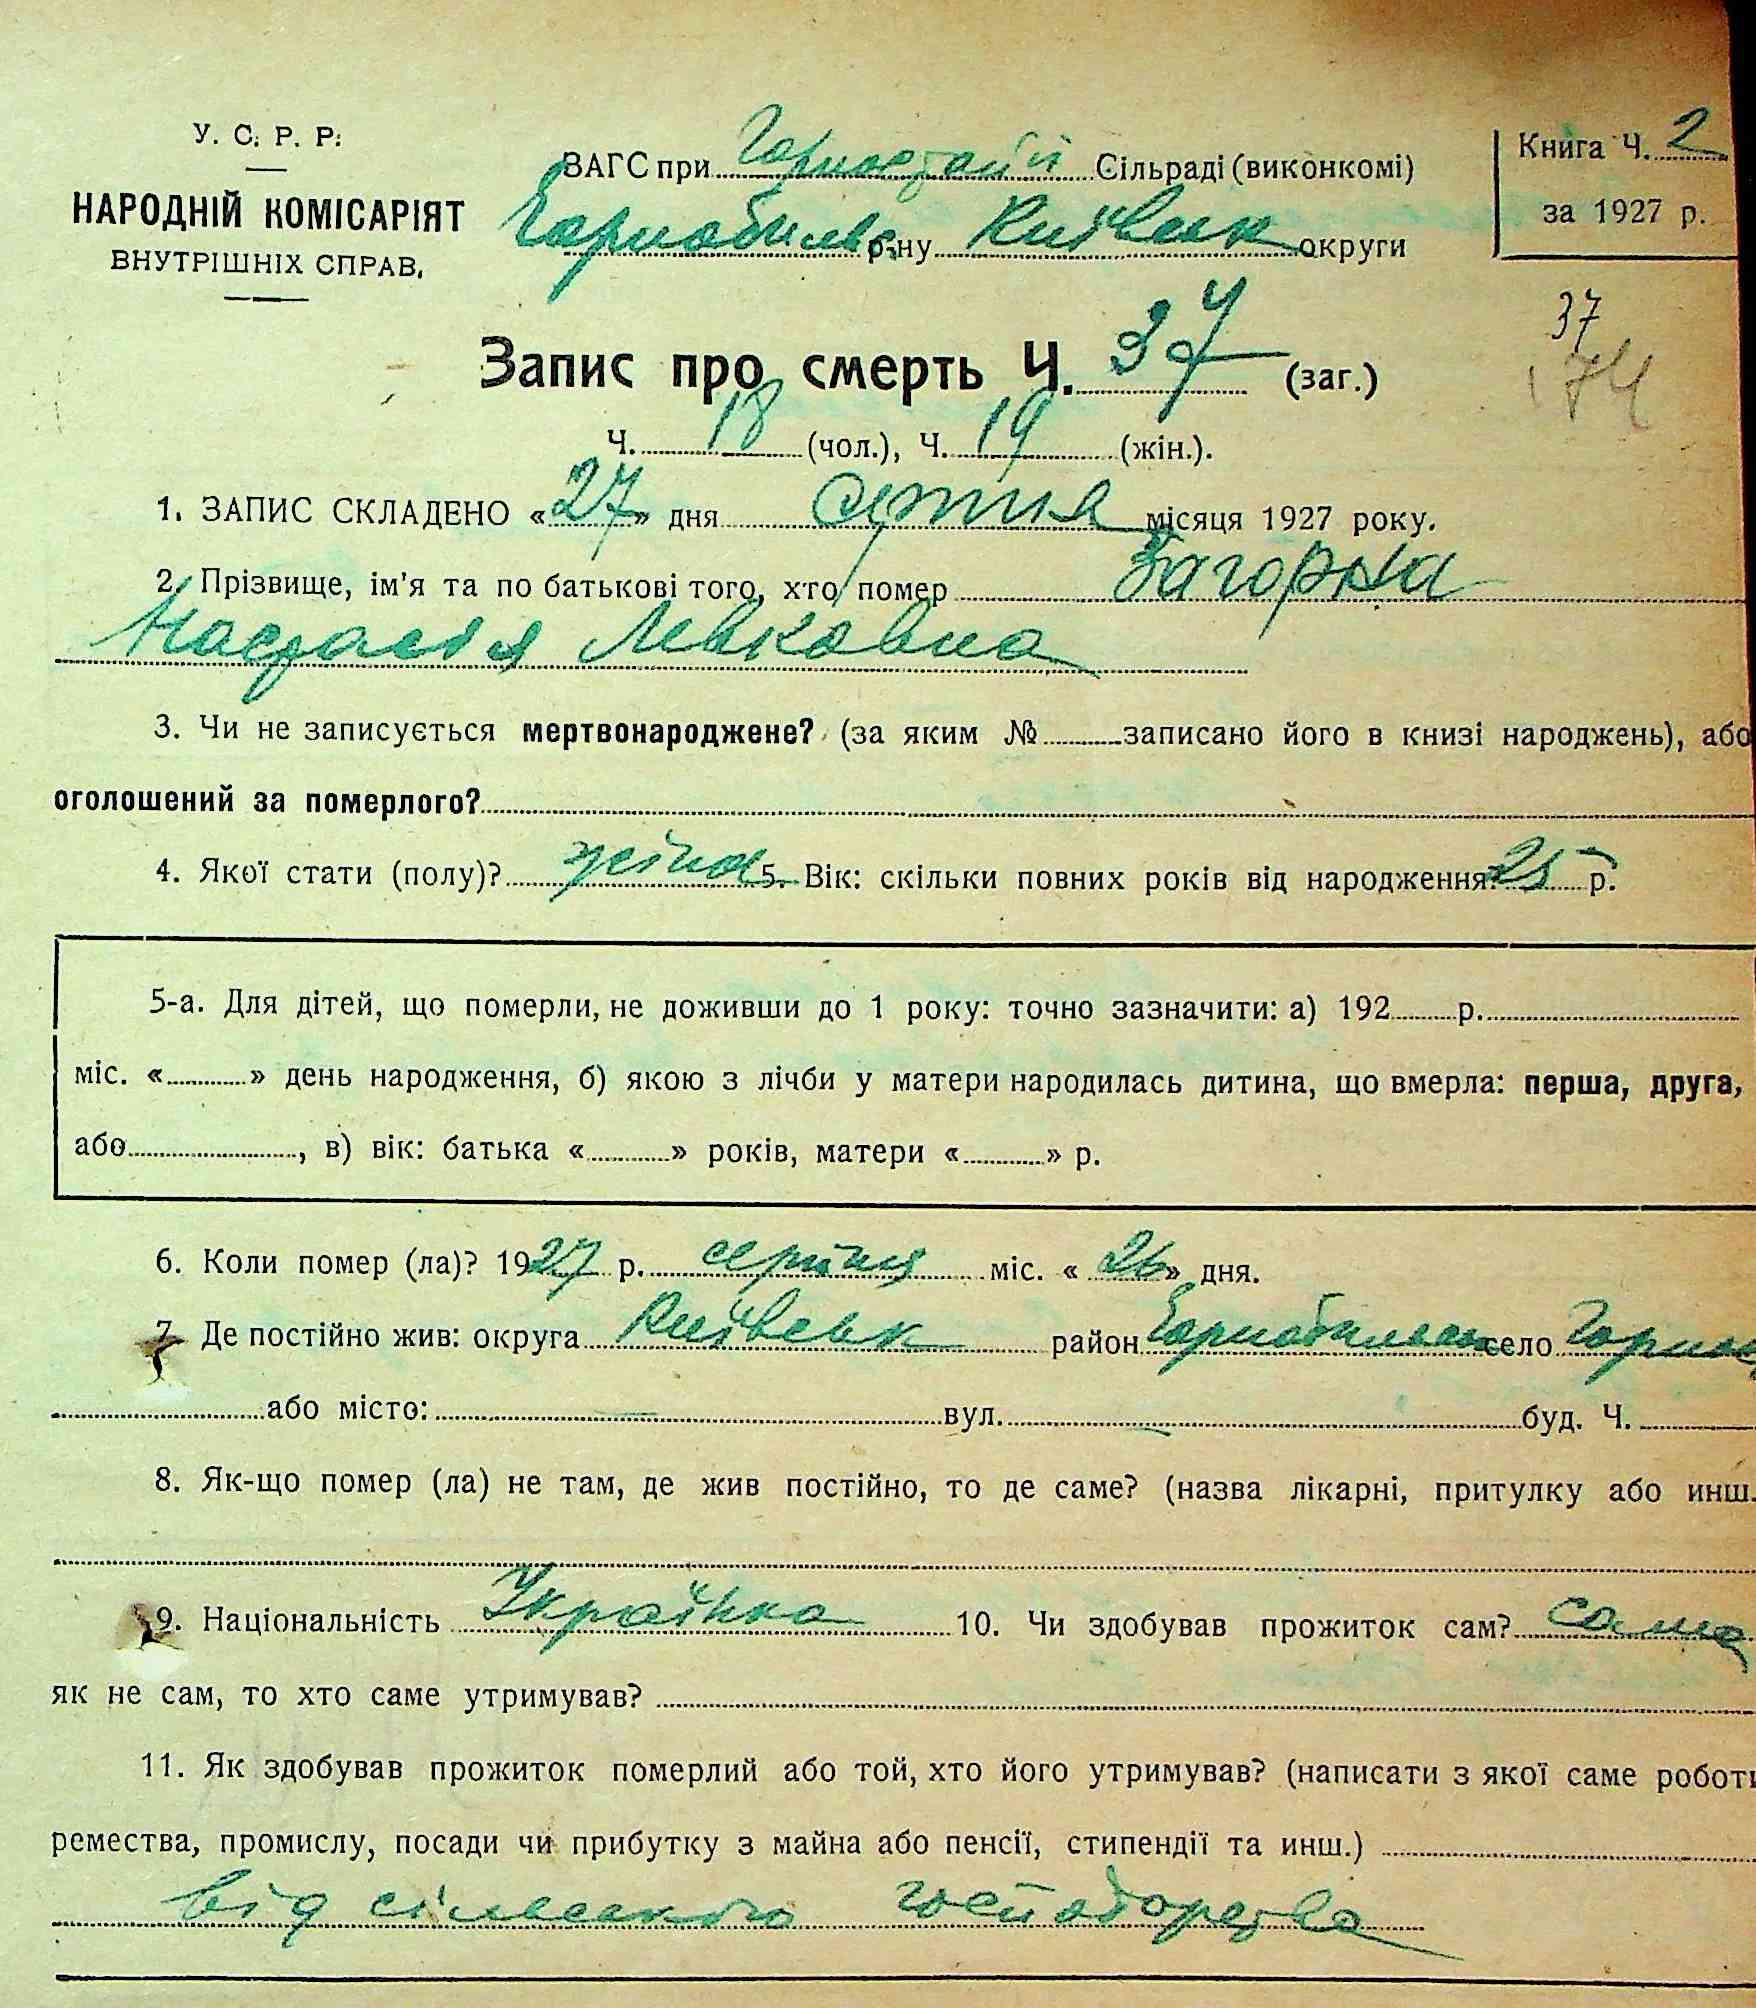 У. С. Р. Р.
НАРОДНІЙ КОМІСАРІЯТ
ВНУТРІШНІХ СПРАВ.
ЗАГС при Горностайп Сільраді (виконкомі)
Чорнобильс р-ну Київськ округи
Книга Ч. 2
за 1927 р.
Запис про смерть Ч. 37 (заг.)
37
174
Ч. 18 (чол.), Ч. 19 (жін.).
1. ЗАПИС СКЛАДЕНО «27» дня серпня місяця 1927 року.
2. Прізвище, ім'я та по батькові того, хто помер Загорна
Настасія Левковна
3. Чи не записується мертвонароджене? (за яким № записано його в книзі народжень), або
оголошений за померлого?
4. Якої стати (полу)? жіноч 5. Вік: скільки повних років від народження 25 р.
5-а. Для дітей, що померли, не доживши до 1 року: точно зазначити: а) 192 р.
міс. « » день народження, б) якою з лічби у матери народилась дитина, що вмерла: перша, друга,
або , в) вік: батька « » років, матери « » р.
6. Коли помер (ла)? 1927 р. серпня міс. «26» дня.
7. Де постійно жив: округа Київськ район Чорнобильськ село Горнос
або місто: вул. буд. Ч.
8. Як-що помер (ла) не там, де жив постійно, то де саме? (назва лікарні, притулку або инш.
9. Національність Українка 10. Чи здобував прожиток сам? сама
як не сам, то хто саме утримував?
11. Як здобував прожиток померлий або той, хто його утримував? (написати з якої саме роботи
ремества, промислу, посади чи прибутку з майна або пенсії, стипендії та инш.)
від сільського господарства